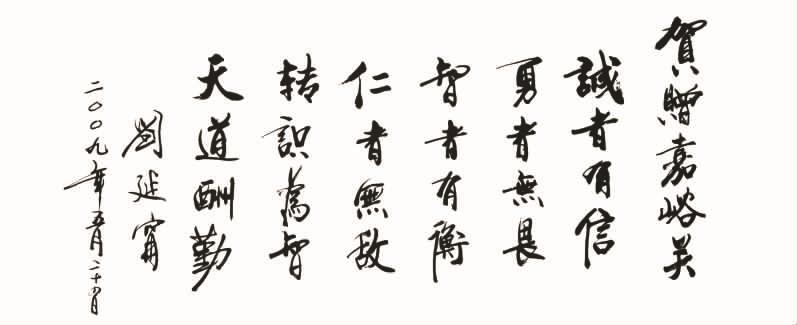 賀贈嘉峪关
誠者有信
勇者無畏
智者有衡
仁者無敌
转識為智
天道酬勤
劉延甯
二〇〇九年五月二十四日